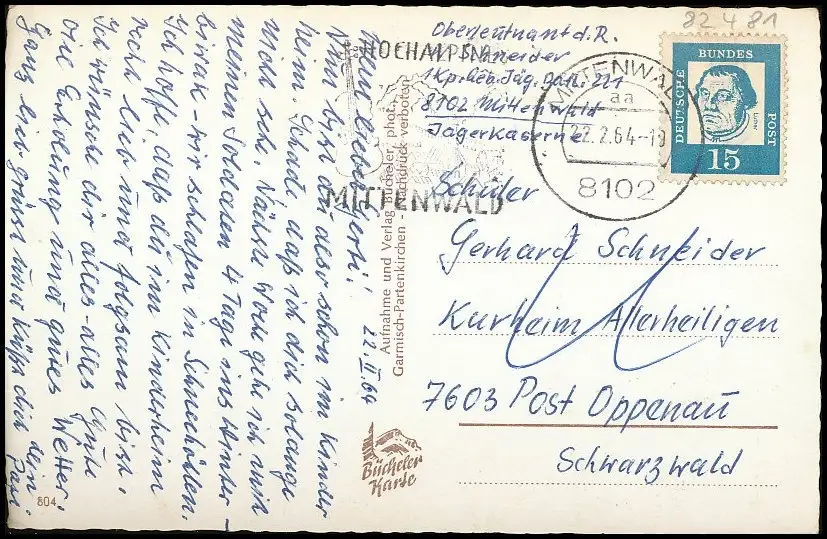 82 4 81
Oberleutnant d. R.
Schneider
1. Kp. Geb. Jäg. Batl. 221
8102 Mittenwald
Jägerkaserne
HOCHALPIN
MITTENWALD
MITTENWALD
aa
22.2.64-19
8102
DEUTSCHE
BUNDES
POST
Luther
15
Schüler
Gerhard Schneider
Kurheim Allerheiligen
7603 Post Oppenau
Schwarzwald
22. II 64
Mein lieber Gerti!
Nun bist du also schon im Kinder
heim. Schade, daß ich dich solange
nicht sehe. Nächste Woche gehe ich mit
meinen Soldaten 4 Tage ins Winter-
biwak. Wir schlafen in Schneehöhlen.
Ich hoffe, daß du im Kinderheim
recht lieb und folgsam bist.
Ich wünsche dir alles-alles Gute
die Erholung und gutes Wetter.
Ganz lieb grüßt und küßt dich dein
Papi.
Aufnahme und Verlag Bücheler, phot.
Garmisch-Partenkirchen - Nachdruck verboten
Bücheler
Karte
804